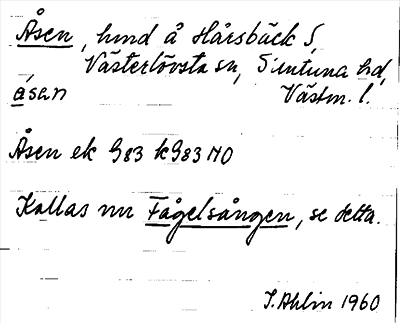 Åsen, hmd å Hårsbäck S,
Västerlövsta sn, Simtuna hd,
åsan Västm. l.
Åsen ek G83 kG83 NO
Kallas nu Fågelsången, se detta.
I. Ahlin 1960